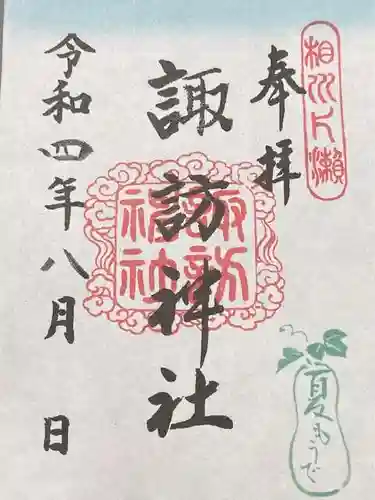 相州片瀬
奉拝
諏訪神社
諏訪神社
令和四年八月 日
夏もうで